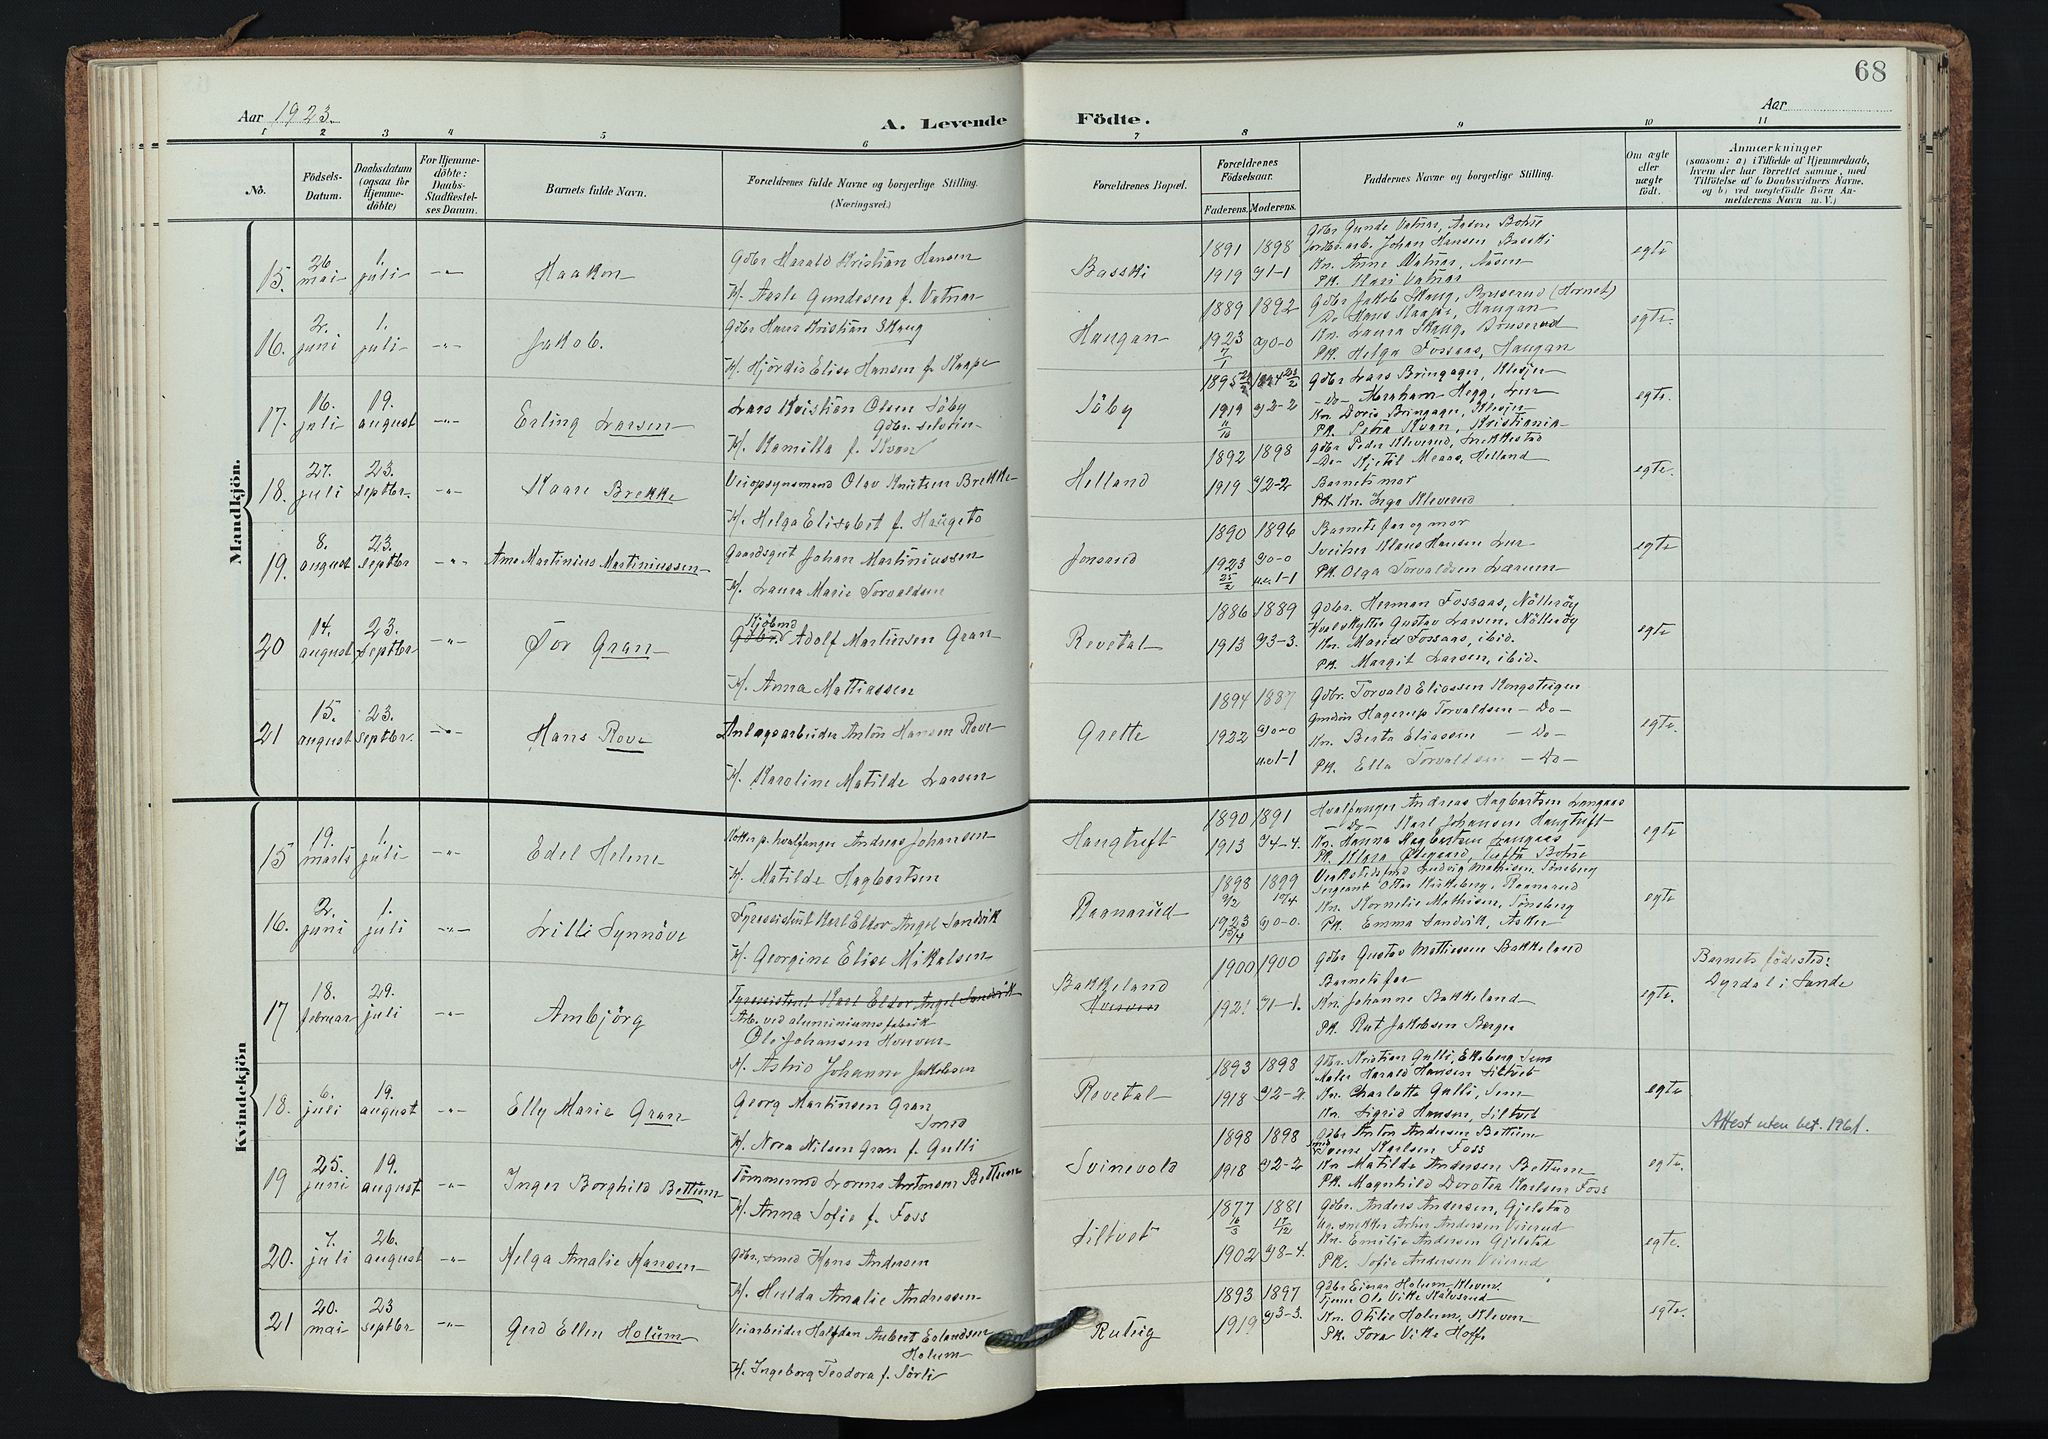 68
Aar 1923.
A. Levende Födte.
Aar
1 2 3 4 5 6 7 8 9 10 11
No.
Födsels-Datum.
Daabsdatum (ogsaa for Hjemme-döbte)
For Hjemme-döbte: Daabs-Stadfæstel-ses Datum.
Barnets fulde Navn.
Forældrenes fulde Navne og borgerlige Stilling. (Næringsvei.)
Forældrenes Bopæl.
Forældrenes Födselsaar.
Faderens. Moderens.
Faddernes Navne og borgerlige Stilling.
Om ægte eller uægte födt.
Anmærkninger
(saasom: a) i Tilfælde af Hjemmedaab,
hvem der har forrettet samme, med
Tilföielse af to Daabsvidners Navne,
og b) ved uægtefödte Börn An-
melderens Navn m. V.)
Mandkjön.
15. 26. mai 1. juli -"- Haakon
Gdbr Harald Kristian Hansen
H. Aasle Gundesen f. Vatnar
Basski
1891 1898
1919 g1-1
Gdbr Gunde Vatnar, Aasen Botne
Johan Hansen Basski
Kn. Anne Vatnar, Aasen
Pk. Kari Vatnar
egte
16. 2. juni 1. juli -"- Jakob.
Gdbr Hans Kristian Skaug
H. Hjördis Elise Hansen f. Kaape
Haugan
1889 1892
1923 g0-0
7/1
Gdbr Jakob Skaug, Bruserud (Hornet)
Do Hans Kaape, Haugan
Kn. Laura Skaug, Bruserud
Pk. Helga Fossaas, Haugan
egte.
17. 16. juli 19. august -"- Erling Larsen
Lars Kristian Olsen Söby
Gdbr. selveier
H. Kamilla f. Kvan
Söby
1919 g2-2
11/10
Gdbr Lars Bringager, Klevjer
-Do- Abraham Hegg, Lur
Kn. Doris Bringager, Klevjer
Pk. Petra Kvan, Kristiania
egte.
18. 27. juli 23. septbr. -"- Kaare Brekke
Veiopsynsmand Olav Knutsen Brekke
H. Helga Elisabet f. Haugeto
Helland
1892 1898
1919 g2-2
Gdbr Peder Kleverud, Sukkestad
-Do- Kjetil Meaas, Helland
Barnets mor
Pk. Kn. Inga Kleverud
egte.
19. 8. august 23. septbr -"- Arne Martinius Martiniussen
Gaardsgut Johan Martiniussen
H. Laura Marie Torvaldsen
Jonsrud
1890 1896
1923 g0-0
25/2 u.e. 1-1
Barnets far og mor
Sveitser Klaus Hansen Lur
Pk. Olga Torvaldsen Lærum
egte
20 14. august 23. septbr -"- Tor Gran
Kjöbmd
Gdbr. Adolf Martinsen Gran
H. Anna Mathiassen
Revetal
1886 1889
1913 g3-3.
Gdbr. Herman Fossaas, Nötteröy
Hvalskytter Gustav Larsen, Nötteröy
Kn. Marie Fossaas, ibid.
Pk. Margit Larsen, ibid.
egte
21 15. august 23. septbr. -"- Hans Rove
Anlægsarbeider Anton Hansen Rove
H. Karoline Matilde Larsen
Grette
1894 1887
1922 g0-0
u.e 1-1
Gdbr. Torvald Eliassen Kongsteigen
Hagerup Torvaldsen -Do-
Kn. Berta Eliassen -Do-
Pk. Ella Torvaldsen -Do-
egte.
Kvindekjön
15 19. marts 1. juli -"- Edel Helene
hvalfanger Andreas Johansen
H. Matilde Hagbartsen
Haugtuft
1890 1891
1913 g4-4.
Hvalfanger Andreas Hagbartsen Langaas
-Do- Karl Johansen Haugtuft
Kn. Hanna Hagbartsen Langaas
Pk. Klara Ödegaard, Tufta Botne
egte
16. 2. juni 1. juli -"- Lilli Synnöve
Karl Eldor Angel Sandvik
H. Georgine Elise Mikalsen
Ragnarud
1898 1899
9/2 10/4
1923 g0-0.
Ludvig Mathisen Tönsberg
Sergeant Otto Kirkeberg, Raanarud
Kn. Kornelie Mathisen, Tönsberg
Pk. Emma Sandvik, Asker
egte
17 18. februar 29. juli -"- Ambjörg
Karl Eldor Angel Sandvik
Arb. ved aluminiumsfabrik
Ole Johansen Horven
H. Astrid Johanne Jakobsen
Bakkeland
Horven
1900 1900
1921 g1-1.
Gdbr Gustav Mathiessen Bakkeland
Barnets far
Kn. Johanne Bakkeland
Pk. Rut Jakobsen Berger
egte.
Barnets födested:
Dyrdal i Sande
18. 6. juli 19. august -"- Elly Marie Gran
Georg Martinsen Gran
Smed
H. Nora Nilsen Gran f. Gulli
Revetal
1893 1898
1918 g2-2
Gdbr. Kristian Gulli, Ekeberg Sem
Maler Harald Hansen Siltvet
Kn. Charlotte Gulli, Sem
Kn. Sigrid Hansen, Siltvet
egte
Attest uten bet. 1961.
19 25. juni 19. august -"- Inger Borghild Bettum
Tömmermd Lorens Antonsen Bettum
H. Anna Sofie f. Foss
Svinevold
1898 1898
1918 g2-2
Gdbr Anton Andersen Bettum
Karlsen Foss
Kn Matilde Andersen Bettum
Pk. Magnhild Dorotea Karlsen Foss
egte.
20. 7. juli 26. august -"- Helga Amalie Hansen
Gdbr, smed Hans Andersen
H. Hulda Amalie Andreasen
Siltvet
1877 1881
16/3 17/12
1902 g8-4.
Gdbr. Anders Andersen, Gjelstad
snekker Andersen Veierud
Kn. Emilie Andersen Gjelstad
Pk. Sofie Andersen Veierud
egte.
21 20. mai 23 septbr -"- Gerd Ellen Holum
Veiarbeider Halfdan Aubert Erlandsen
Holum
H. Ingeborg Teodora f. Sörli
Rutvig
1893 1897
1919 g3-3.
Gdbr Einar Holum Kleven
Ole Vike Kalvsrud
Kn. Otilie Holum, Kleven
Pk. Tora Vike Hoff
egte.